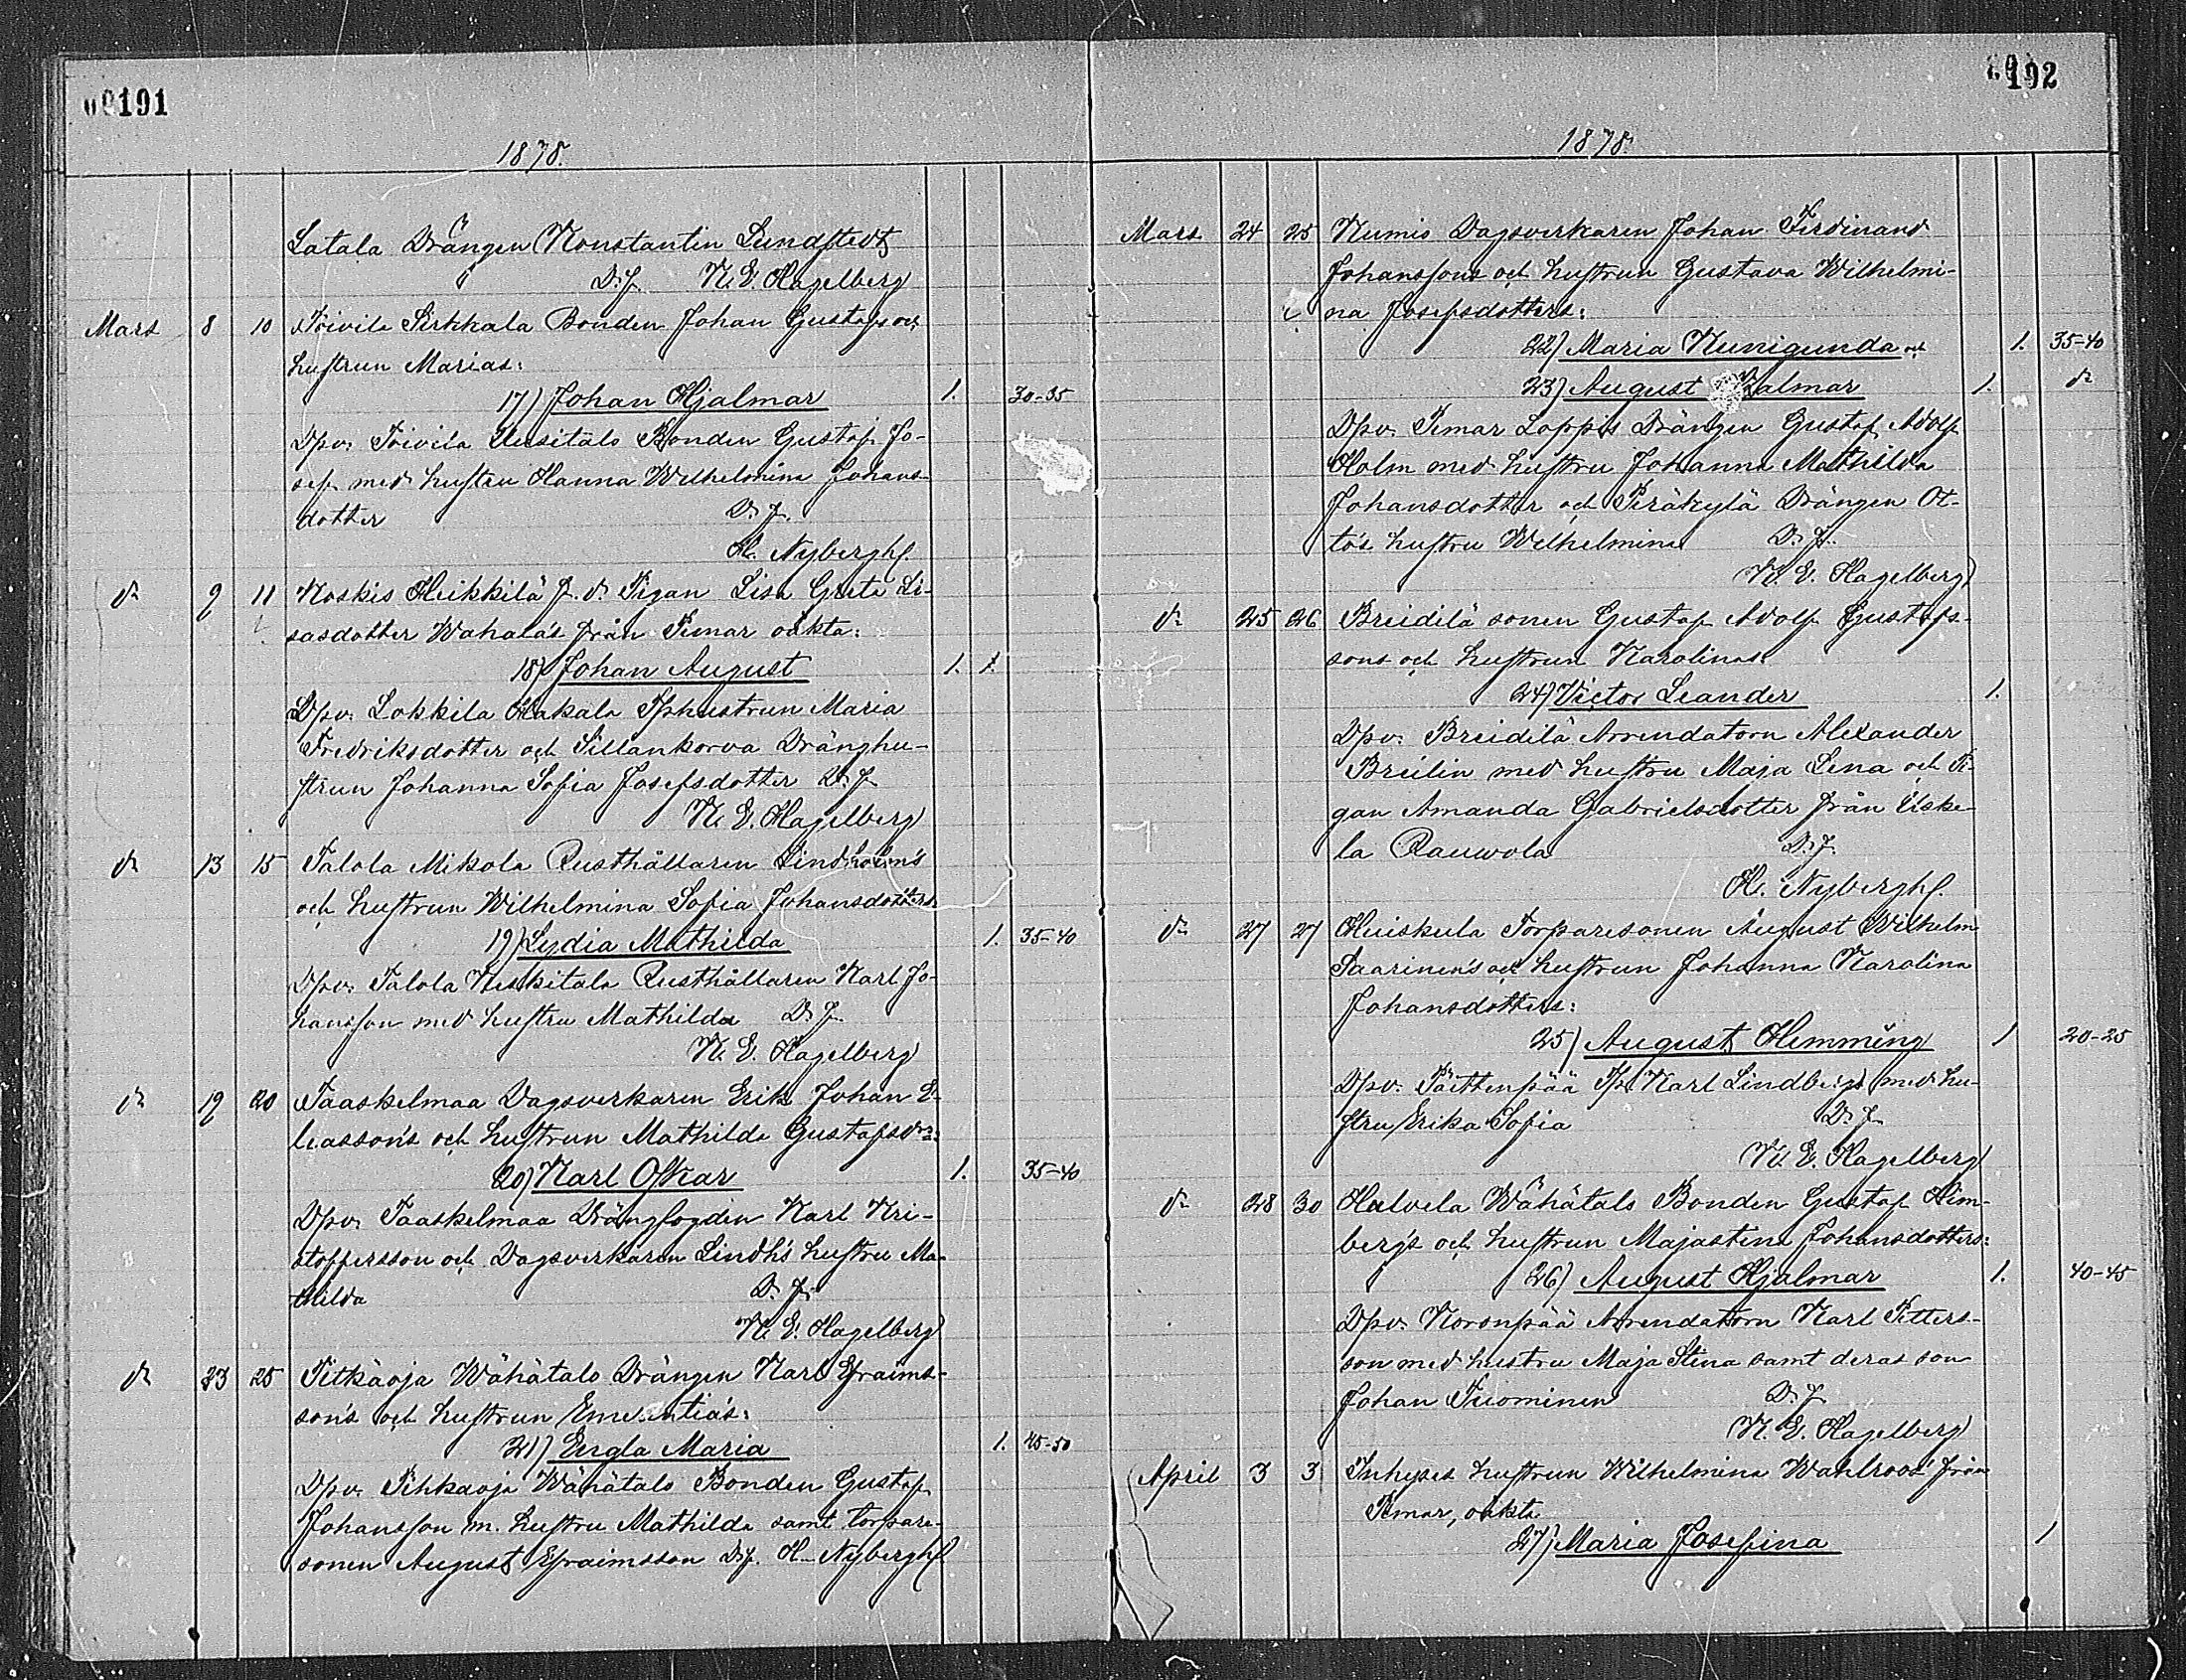 191
1878.
Latala Drängen Konstantin Lundstedt
D. f. K. E. Hagelberg
Mars 8 10 Toivila Sirkkala Bonden Johan Gustafs och
hustrun Marias:
17) Johan Hjalmar 1. 30-35
Dpv. Toivila Uusitalo Bonden Gustaf Jo-
sef med hustru Hanna Wilhelmina Johans-
dotter D. f.
H. Nybergh.
dr 9 11 Koskis Heikkilä f. d. Pigan Lisa Greta Li-
sasdotter Wahala's från Pemar oäkta:
18) Johan August 1. 1.
Dpv. Lokkila Hakala Tphustrun Maria
Fredriksdotter och Sillankorva Dränghu-
strun Johanna Sofia Josefsdotter D. f.
K. E. Hagelberg
dr 13 15 Talola Mikola Rusthållaren Lindholm's
och hustrun Wilhelmina Sofia Johansdotters
19) Lydia Mathilda 1. 35-40
Dpv. Talola Keskitalo Rusthållaren Karl Jo-
hansson med hustru Mathilda D. f.
K. E. Hagelberg
dr 19 20 Taaskelmaa Dagsverkaren Erik Johan E-
liasson's och hustrun Mathilda Gustafsdrs:
20) Karl Oskar 1. 35-40
Dpv. Taaskelmaa Drängfogden Karl Kri-
stoffersson och Dagsverkaren Lindh's hustru Ma-
thilda D. f.
K. E. Hagelberg
dr 23 25 Pitkäoja Wähätalo Drängen Karl Efraims-
son's och hustrun Emerentia's:
21) Engla Maria 1. 45-50
Dpv. Pihkaoja Wähätalo Bonden Gustaf
Johansson m. hustru Mathilda samt torpare-
sonen August Efraimsson D.f. H. Nybergh
192
1878.
Mars 24 25 Numis Dagsverkaren Johan Ferdinand
Johanssons och hustrun Gustava Wilhelmi-
na Josefsdotters:
22) Maria Kunigunda och 1. 35-40
23) August Walmar 1. dr
Dpv. Pemar Loppis Drängen Gustaf Adolf
Holm med hustru Johanna Mathilda
Johansdotter och Peräkylä Drängen Ot-
to's hustru Wilhelmina D. f.
K. E. Hagelberg
dr 25 26 Breidilä sonen Gustaf Adolf Gustafs-
sons och hustrun Karolinas:
24) Victor Leander 1.
Dpv. Breidilä Arrendatorn Alexander
Breilin med hustru Maja Lena och Pi-
gan Amanda Gabrielsdotter från Uske-
la Rauwola D. f.
H. Nybergh.
dr 27 27 Huiskula Torparesonen August Wilhelm
Saarinen's och hustrun Johanna Karolina
Johansdotters:
25) August Hemming 1 20-25
Dpv. Paittenpää Tp. Karl Lindberg med hu-
stru Erika Sofia D. f.
K. E. Hagelberg
dr 28 30 Halvela Wähätalo Bonden Gustaf Him-
berg's och hustrun Majastina Johansdotters:
26) August Hjalmar 1. 40-45
Dpv. Koronpää Arrendatorn Karl Petters-
son med hustru Maja Stina samt deras son
Johan Tuominen D. f.
K. E. Hagelberg
April 3 3 Inhyses hustrun Wilhelmina Wahlroos' från
Pemar, oäkta
27) Maria Josefina 1